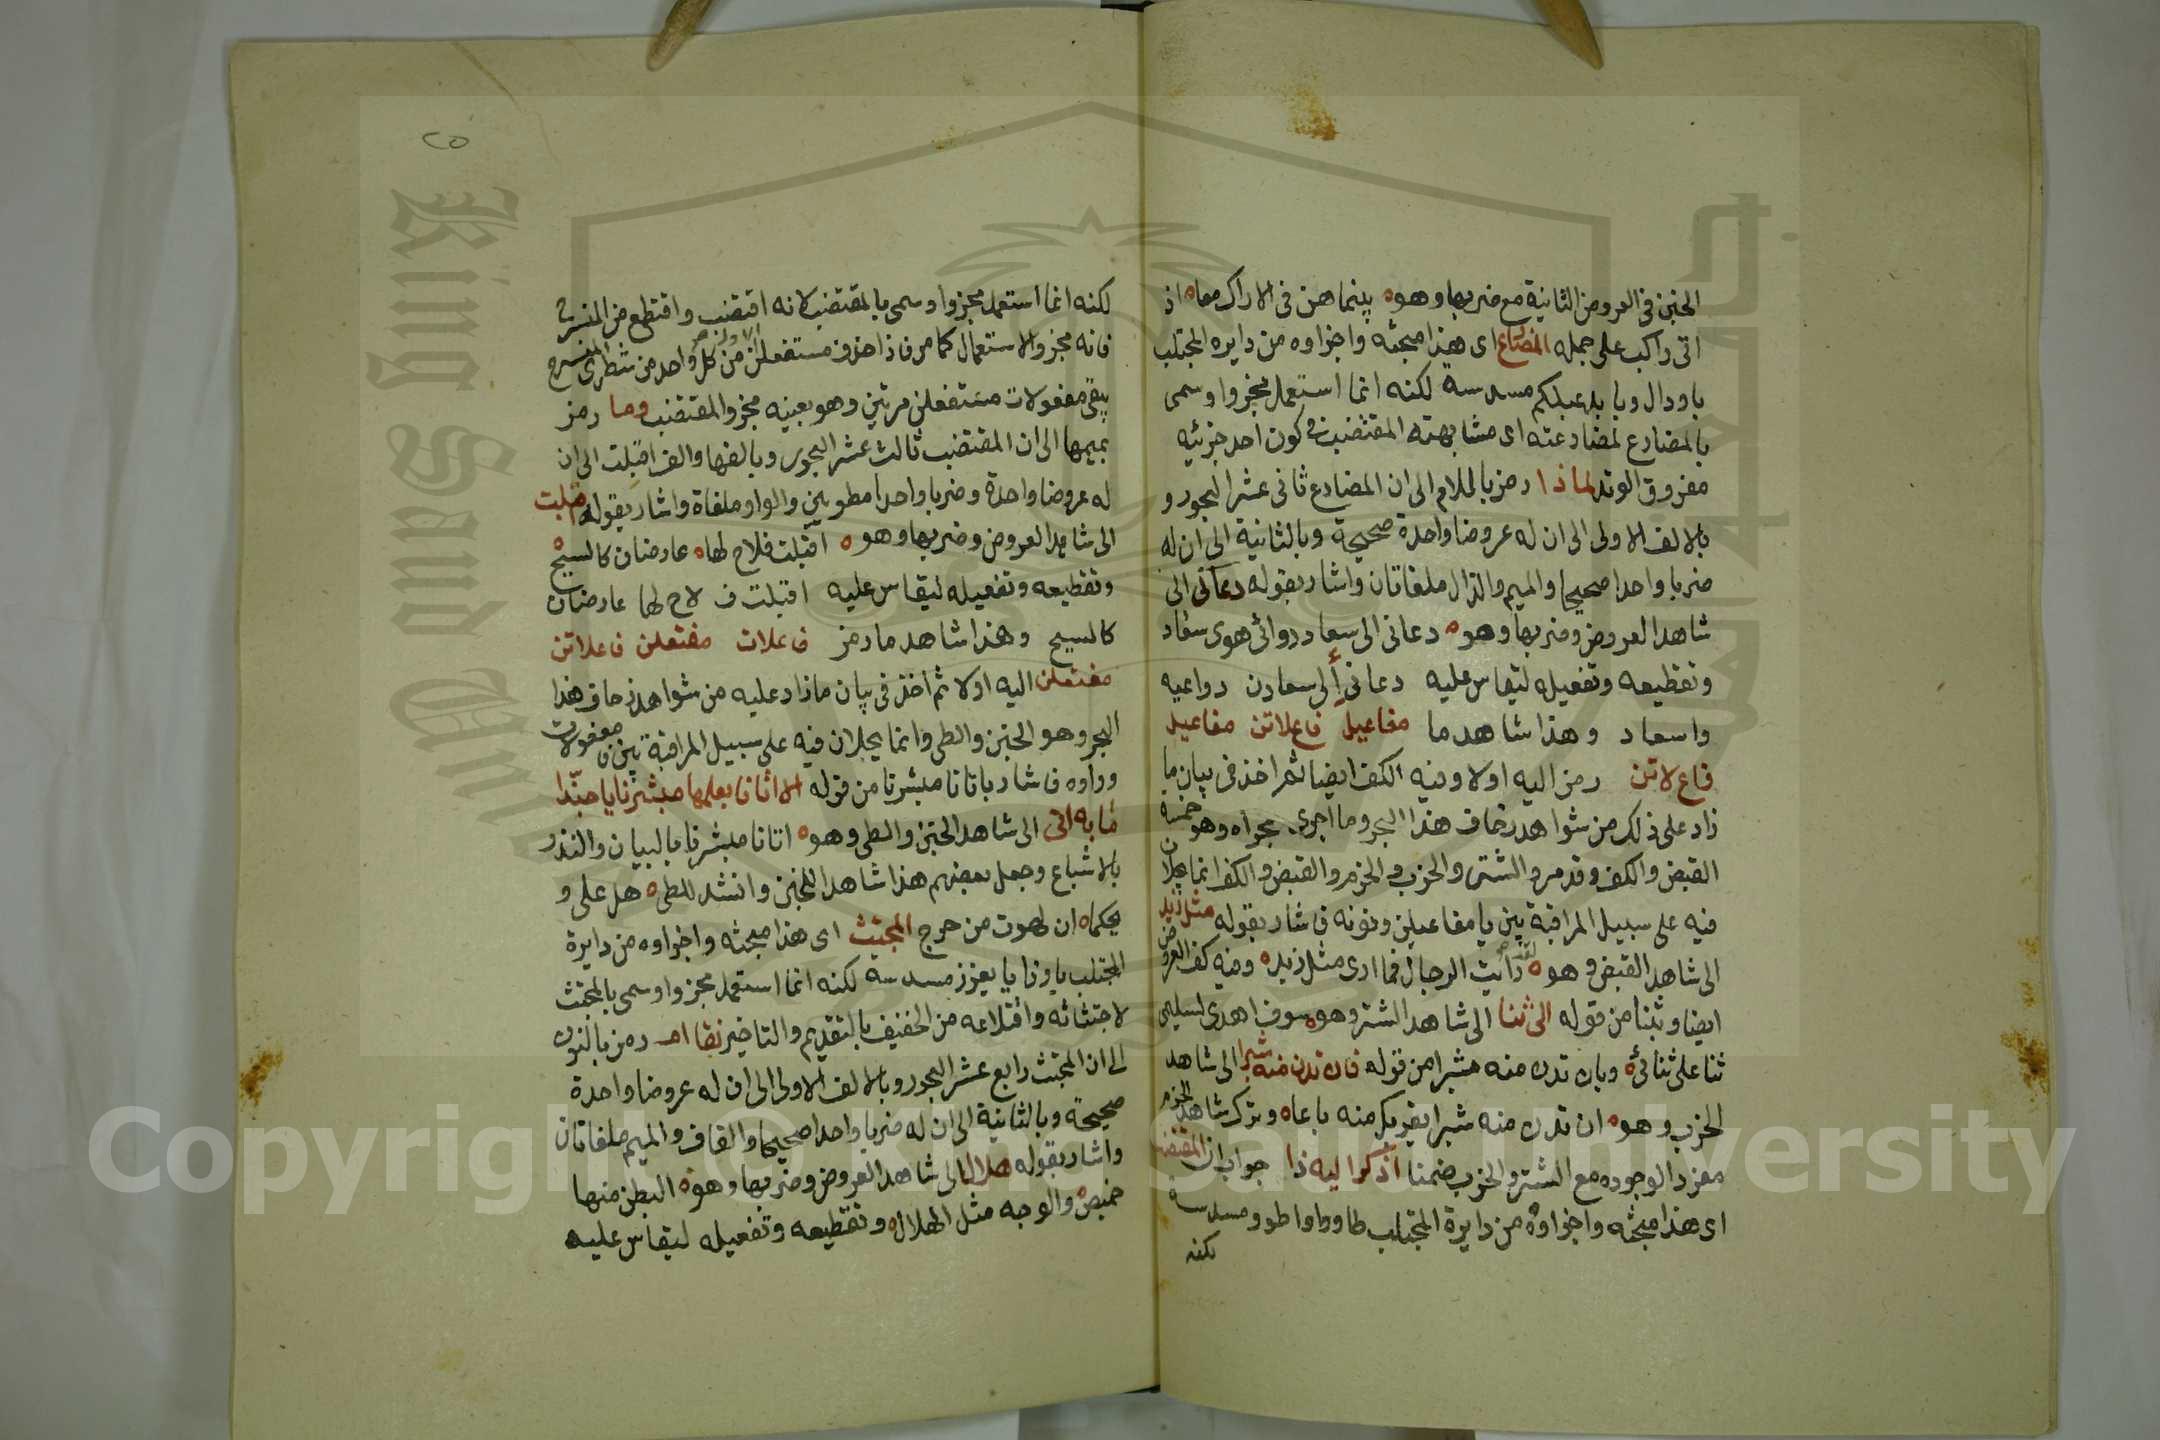 الخبن في العروض الثانية مع ضربها وهو ه بينما هن في الاراك معا ه اذ
اتى راكب على جمله المضارع اى هذا مبحثه واجزاوه من دايره المجتلب
باودال وبا بلا عبلكم مسدسة لكنه انما استعمل مجزوا وسمى
بالمضارع لمضارعته اى مشابهته المقتضب في كون احد جزئيه
مفروق الوتد لماذا رمز باللام الى ان المضارع ثانى عشر البحور و
بالالف الاولى الى ان له عروضا واحدة صحيحة وبالثانية الى ان له
ضربا واحدا صحيحا والميم والذال ملغاتان واشار بقوله دعانى الى
شاهد العروض وضربها وهو ه دعانى الى سعاد دوائى هوى سعاد
وتقطيعه وتفعيله ليقاس عليه دعانى ألى سعادن دواعيه
واسعاد وهذا شاهد ما مفاعيل فاعلاتن مفاعيل
فاع لاتن رمز اليه اولا وفيه الكف ايضا ثم اخذ في بيان ما
زاد على ذلك من شواهد زحاف هذا البحر وما اجرى مجراه وهو خمسة
القبض والكف وقد مر والشتر والخرب والخرم والقبض والكف انما يحلان
فيه على سبيل المراقبة بين يا مفاعيلن ونونه فاشار بقوله مثل زيد
الى شاهد القبض وهو ه وقد رأيت الرجال فما ارى مثل زيد ه وفيه كف العروض
ايضا وبثنا من قوله الى ثنا الى شاهد الشتر وهو ه سوف اهدى لسليمى
ثنا على ثنائى ه وبان تدن منه شبرا من قوله فان تدن منه شبرا الى شاهد
الخرب وهو ه ان تدن منه شبرا يقربك منه باعا ه وترك شاهد الخرم
مفردا لوجوده مع الشتر والخرب ضمنا اذكرا ليه ذا جواب ان المقتضب
اى هذا مبحثه واجزاوه من دايرة المجتلب طاووا واطو ومسدسة
لكنه
٢٥
لكنه انما استعمل مجزوا وسمى بالمقتضب لانه اقتضب واقتطع من المنسرح
فانه مجزو الاستعمال كما مر فاذا حذف مستفعلن الاول من كل واحد من شطرى المنسرح
بقى مفعولات مستفعلن مرتين وهو بعينه مجزو المقتضب وما رمز
بميمها الى ان المقتضب ثالث عشر البحور وبالفها والف اقبلت الى ان
له عروضا واحدة وضربا واحدا مطويين والواو ملغاة واشار بقوله اقبلت
الى شاهد العروض وضربها وهو ه اقبلت فلاح لها ه عارضان كالسبج
وتقطيعه وتفعيله ليقاس عليه اقبلت ف لاح لها عارضان
كالسبج وهذا شاهد ما رمز فاعلات مفتعلن فاعلاتن
مفتعلن اليه اولا ثم اخذ في بيان ما زاد عليه من شواهد زحاف هذا
البحر وهو الخبن والطى وانما يحلان فيه على سبيل المراقبة بين فا مفعولات
وواوه فاشار باتانا مبشرنا من قوله الا اتانا بعلمها مبشرنا يا حبذا
ما به اتى الى شاهد الخبن والطى وهو ه اتانا مبشرنا بالبيان والنذر
بالاشباع وجعل بعضهم هذا شاهدا للخبن وانشد للطى ه هل على و
يحكما ه ان لهوت من حرج المجتث اى هذا مبحثه واجزاوه من دايرة
المجتلب باوزا يا يعزز مسدسة لكنه انما استعمل مجزوا وسمى بالمجتث
لاجتثاثه واقتلاعه من الخفيف بالتقديم والتاخير نقا ام رمز بالنون
الى ان المجتث رابع عشر البحور وبالالف الاولى الى ان له عروضا واحدة
صحيحة وبالثانية الى ان له ضربا واحدا صحيحا والقاف والميم ملغاتان
واشار بقوله هلالا الى شاهد العروض وضربها وهو ه البطن منها
خميص ه والوجه مثل الهلال ه وتقطيعه وتفعيله ليقاس عليه
King Saud University
Copyright © King Saud University